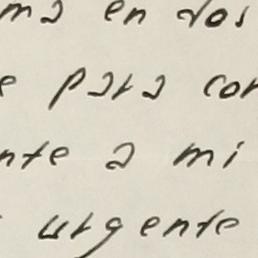 ma en dos
e para con
nte a mi
urgente